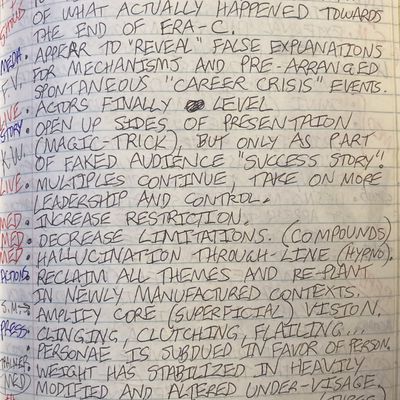 OF WHAT ACTUALLY HAPPENED TOWARDS
THE END OF ERA-C.
MEDIA. APPEAR TO "REVEAL" FALSE EXPLANATIONS
F.V. FOR MECHANISMS AND PRE-ARRANGED
SPONTANEOUS "CAREER CRISIS" EVENTS.
LIVE. ACTORS FINALLY LEVEL
STORY. OPEN UP SIDES OF PRESENTAION
K.W. (MAGIC-TRICK), BUT ONLY AS PART
OF FAKED AUDIENCE "SUCCESS STORY".
LIVE. MULTIPLES CONTINUE, TAKE ON MORE
LEADERSHIP AND CONTROL.
MED. INCREASE RESTRICTION.
MED. DECREASE LIMITATIONS. (COMPOUNDS)
MED. HALLUCINATION THROUGH-LINE (HYPNO).
ACTIONS. RECLAIM ALL THEMES AND RE-PLANT
IN NEWLY MANUFACTURED CONTEXTS.
S.M.→ AMPLIFY CORE (SUPERFICIAL) VISION.
PRESS. CLINGING, CLUTCHING, FLAILING...
PERSONAE IS SUBDUED IN FAVOR OF PERSON.
WEIGHT HAS STABILIZED IN HEAVILY
MED MODIFIED AND ALTERED UNDER-VISAGE.